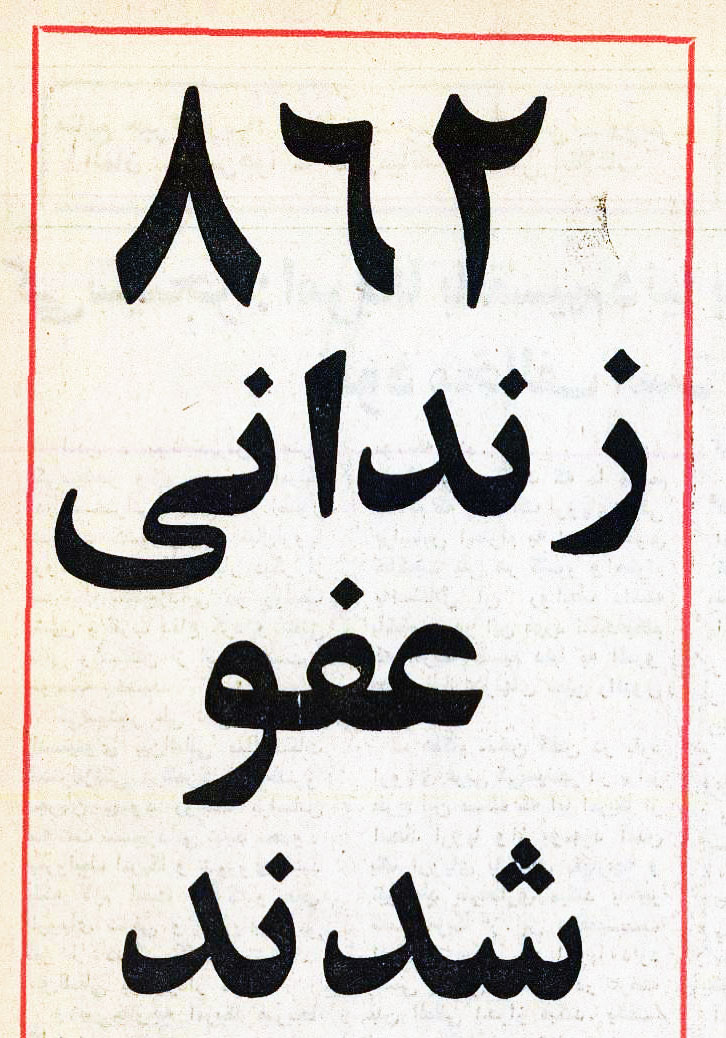 ٨٦٢
زندانی
عفو
شدند